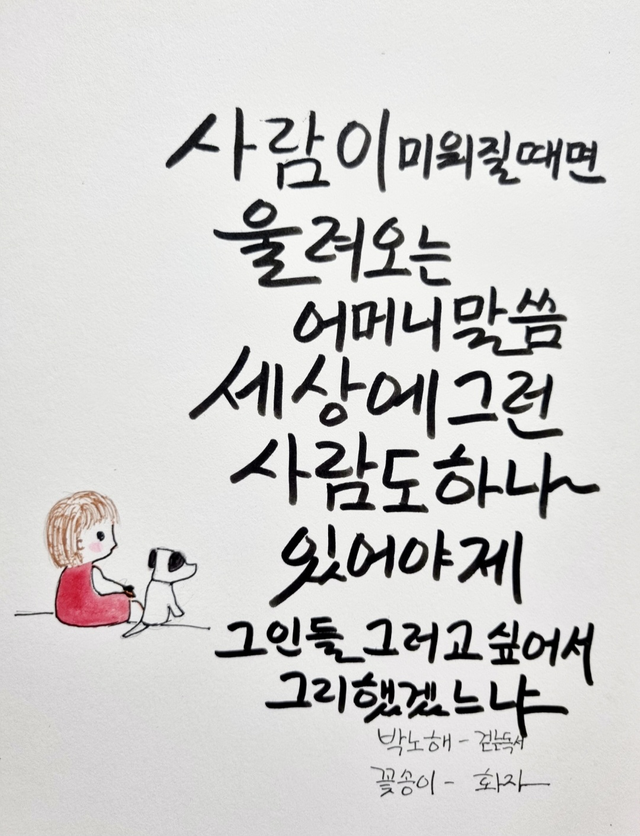 사람이 미워질때면
울려오는
어머니 말씀
세상에 그런
사람도 하나~
있어야제
그인들 그러고 싶어서
그리했겠느냐
박노해 - 걷는독서
꽃송이 - 화자